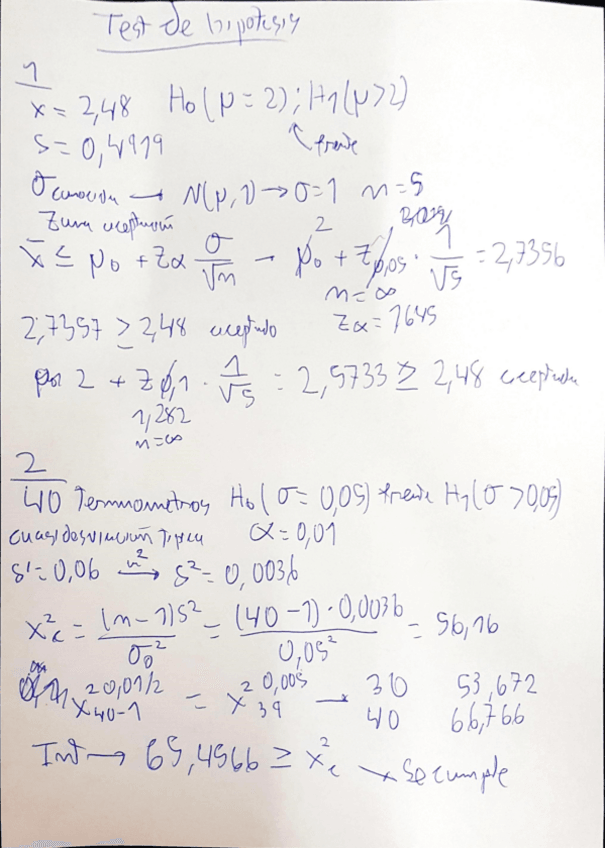 Test de hipotesis
1
x = 2,48 H0(μ = 2); H1(μ>2)
S = 0,4919 frente
σ conocida → N(μ,1) → σ=1 n=5
Zona aceptación
x̄ ≤ μ0 + Zα σ/√n → μ0 + Z0,05 · 1/√5 = 2,7356
2
n = ∞
2,7357 ≥ 2,48 aceptado Zα = 1645
por 2 + Z0,1 · 1/√5 = 2,5733 ≥ 2,48 aceptada
1,282
n=∞
2
40 Termometros H0(σ = 0,05) frente H1(σ >0,05)
cuasidesviación Típica α = 0,01
s' = 0,06 → s² = 0,0036
x²c = (n-1)s²/σ0² = (40-1)·0,0036/0,05² = 56,16
x² 0,01/2 40-1 = x² 0,005 39 → 30 53,672
40 66,766
Int → 65,4566 ≥ x²c ↘ Se cumple